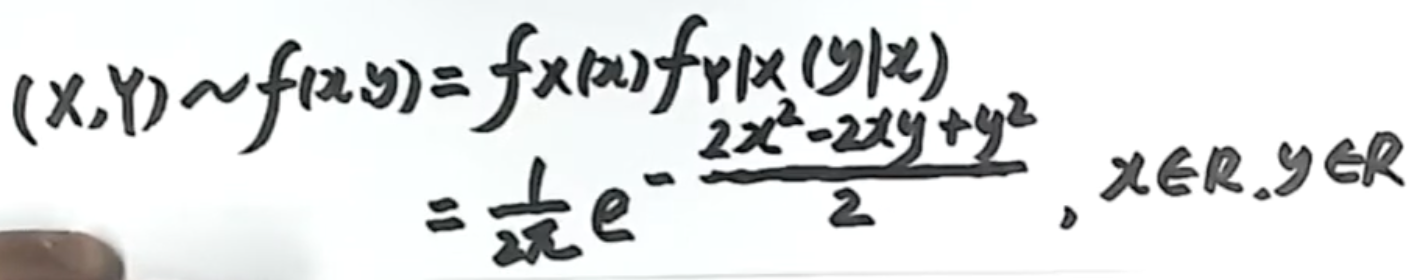 (X,Y)~f(x,y)=f_X(x)f_{Y|X}(y|x)
=\frac{1}{2π}e^{-\frac{2x²-2xy+y²}{2}}, x∈R.y∈R